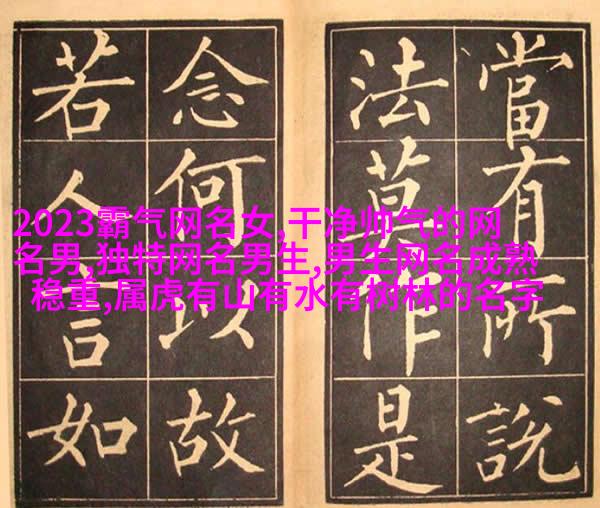 當有所說
法莫作是
念何以故
若人言如
2023霸气网名女,干净帅气的网
名男,独特网名男生,男生网名成熟
稳重,属虎有山有水有树林的名字